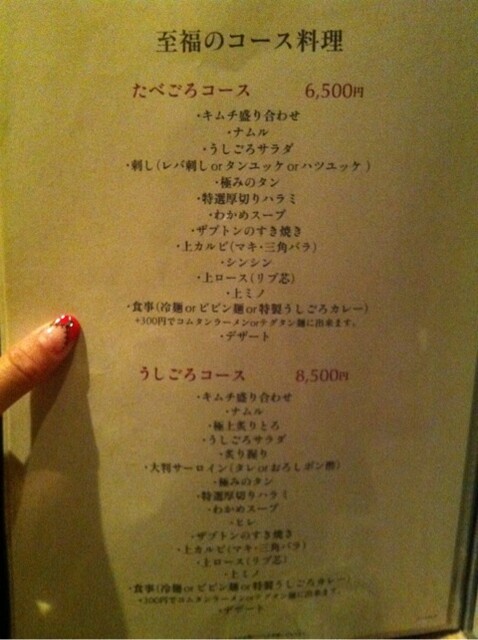 至福のコース料理
たべごろコース 6,500円
・キムチ盛り合わせ
・ナムル
・うしごろサラダ
・刺し(レバ刺しorタンユッケorハツユッケ)
・極みのタン
・特選厚切りハラミ
・わかめスープ
・ザブトンのすき焼き
・上カルビ(マキ・三角バラ)
・シンシン
・上ロース(リブ芯)
・上ミノ
・食事(冷麺orビビン麺or特製うしごろカレー)
*300円でコムタンラーメンorテグタン麺に出来ます。
・デザート
うしごろコース 8,500円
・キムチ盛り合わせ
・ナムル
・極上炙りとろ
・うしごろサラダ
・炙り握り
・大判サーロイン(タレorおろしポン酢)
・極みのタン
・特選厚切りハラミ
・わかめスープ
・ヒレ
・ザブトンのすき焼き
・上カルビ(マキ・三角バラ)
・上ロース(リブ芯)
・上ミノ
・食事(冷麺orビビン麺or特製うしごろカレー)
*300円でコムタンラーメンorテグタン麺に出来ます。
・デザート